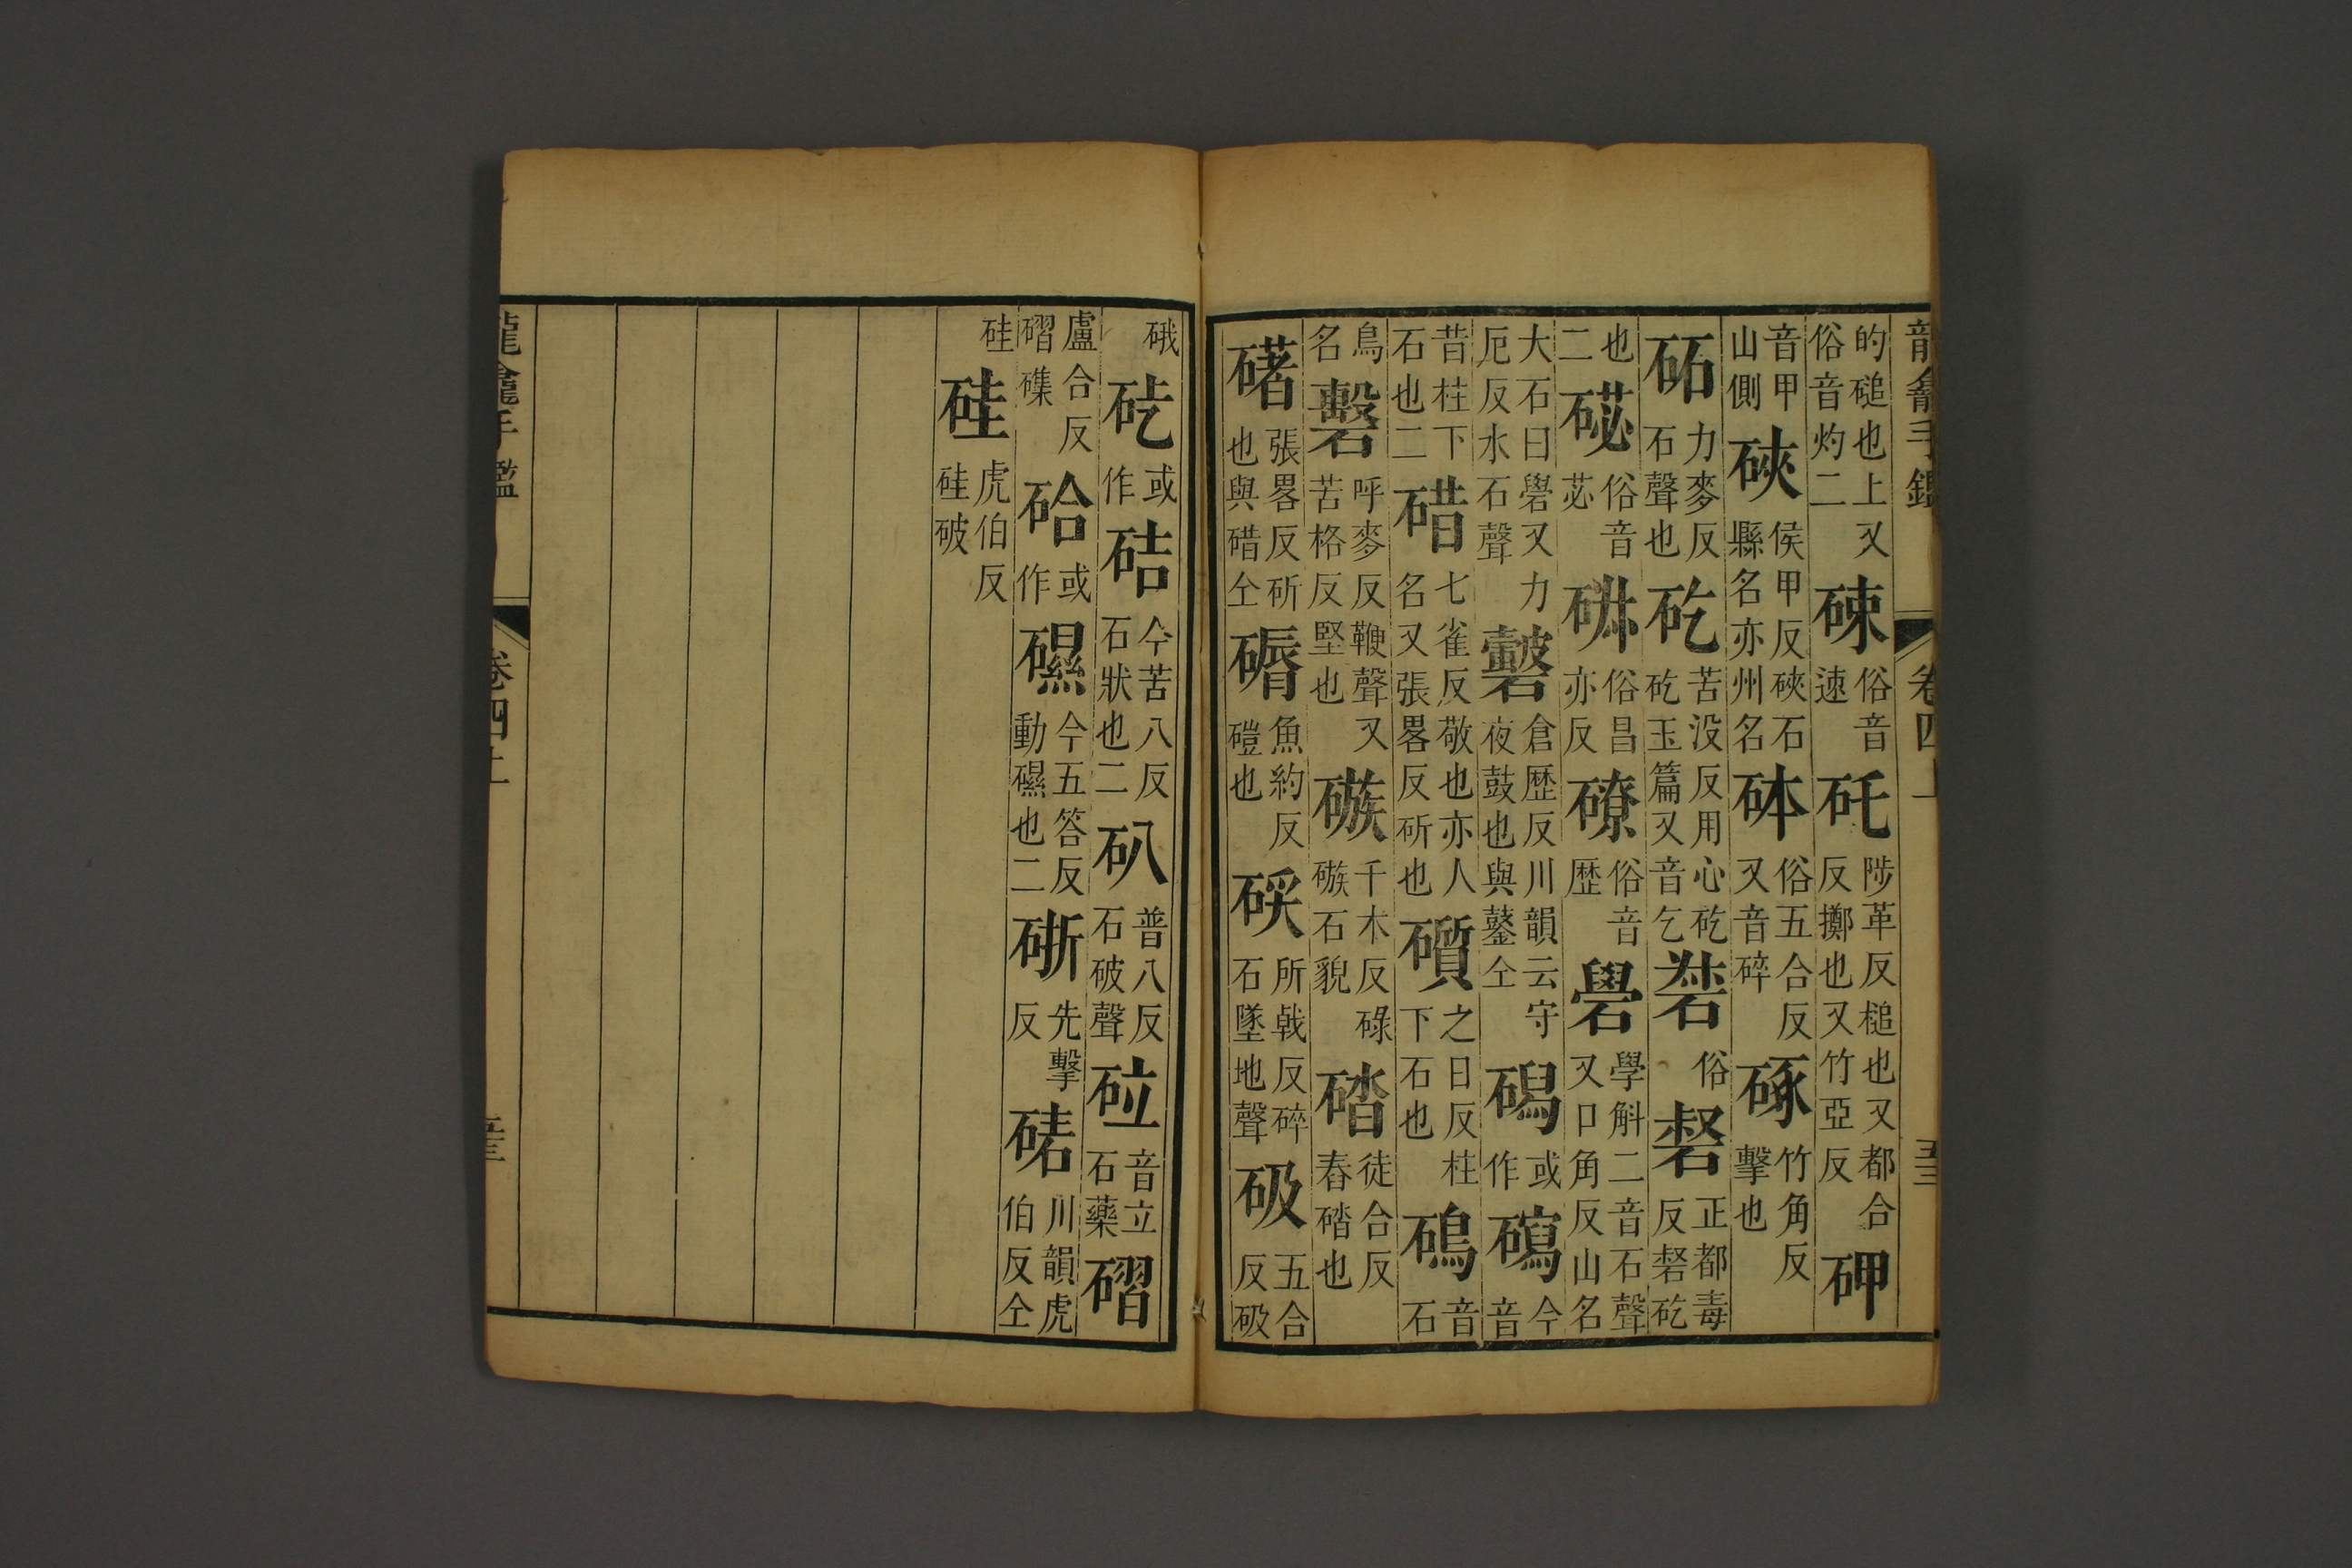 龍龕手鑑 卷四上 五三
的磓也上又俗音灼二 𥑐 俗音速 矺 陟革反槌也又都合反擲也又竹亞反 砷
音甲山側 硤 侯甲反硤石縣名亦州名 砵 俗五合反又音碎 硺 竹角反擊也
䂖 力麥反石聲也 矻 苦没反用心矻矻玉篇又音乞 俗 正都毒反矻
也二 俗音苾 俗昌亦反 俗音歷 礐 學斛二音石聲又口角反山名
大石曰礐又力厄反水石聲 倉歷反川韻云守夜鼓也與鼜仝 碣 或作 磶 今音
昔柱下石也二 碏 七雀反敬也亦人名又張畧反斫也 礩 之日反柱下石也 䃖 音石
鳥名 呼麥反鞭聲又苦格反堅也 千木反碌石貌 踏 徒合反舂也
䃴 張畧反斫也與碏仝 魚約反磑也 所戟反碎石墜地聲 砐 五合反砐
硪 矻 或作 硈 今苦八反石狀也二 䂆 普八反石破聲 砬 音立石藥 磖
盧合反磼 硆 或作 今五答反動也二 先擊反 川韻虎伯反仝
硅 硅 虎伯反硅破
龍龕手鑑 卷四上 五三